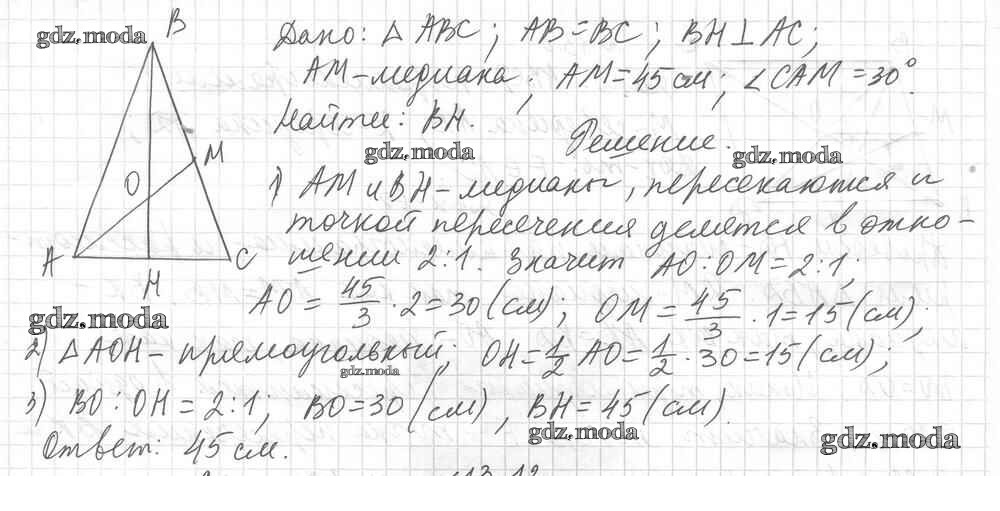 gdz.moda
B
Дано: △ ABC; AB = BC; BH ⊥ AC;
AM – медиана; AM = 45 см; ∠CAM = 30°.
Найти: BH.
gdz.moda
Решение.
gdz.moda
M
O
A
C
H
1) AM и BH – медианы, пересекаются и
точкой пересечения делятся в отно-
шении 2:1. Значит AO : OM = 2:1;
AO = 45/3 · 2 = 30 (см); OM = 45/3 · 1 = 15 (см);
gdz.moda
2) △ AOH – прямоугольный; OH = 1/2 AO = 1/2 · 30 = 15 (см);
gdz.moda
3) BO : OH = 2:1; BO = 30 (см), BH = 45 (см)
gdz.moda
Ответ: 45 см.
gdz.moda